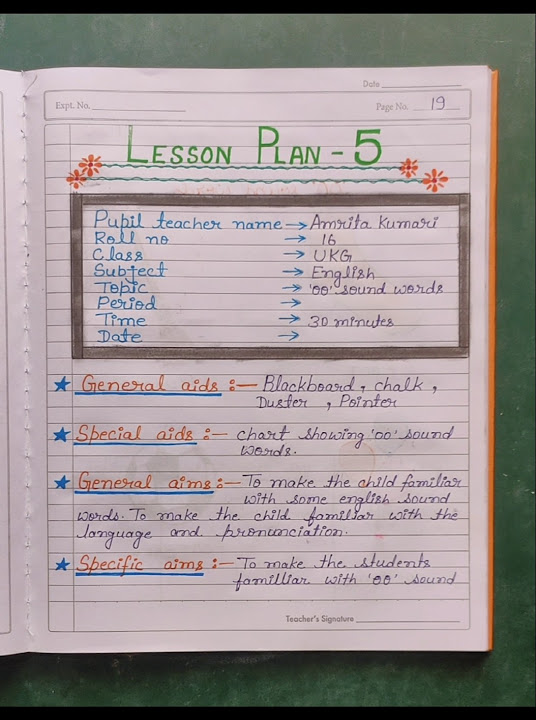 Date
Expt. No.
Page No. 19
LESSON PLAN - 5
Pupil teacher name → Amrita Kumari
Roll no → 16
Class → UKG
Subject → English
Topic → 'oo' sound words
Period →
Time → 30 minutes
Date →
★ General aids :— Blackboard, chalk,
Duster, Pointer
★ Special aids :— chart showing 'oo' sound
words.
★ General aims :— To make the child familiar
with some english sound
words. To make the child familiar with the
language and pronunciation.
★ Specific aims :— To make the students
familliar with 'oo' sound
Teacher's Signature